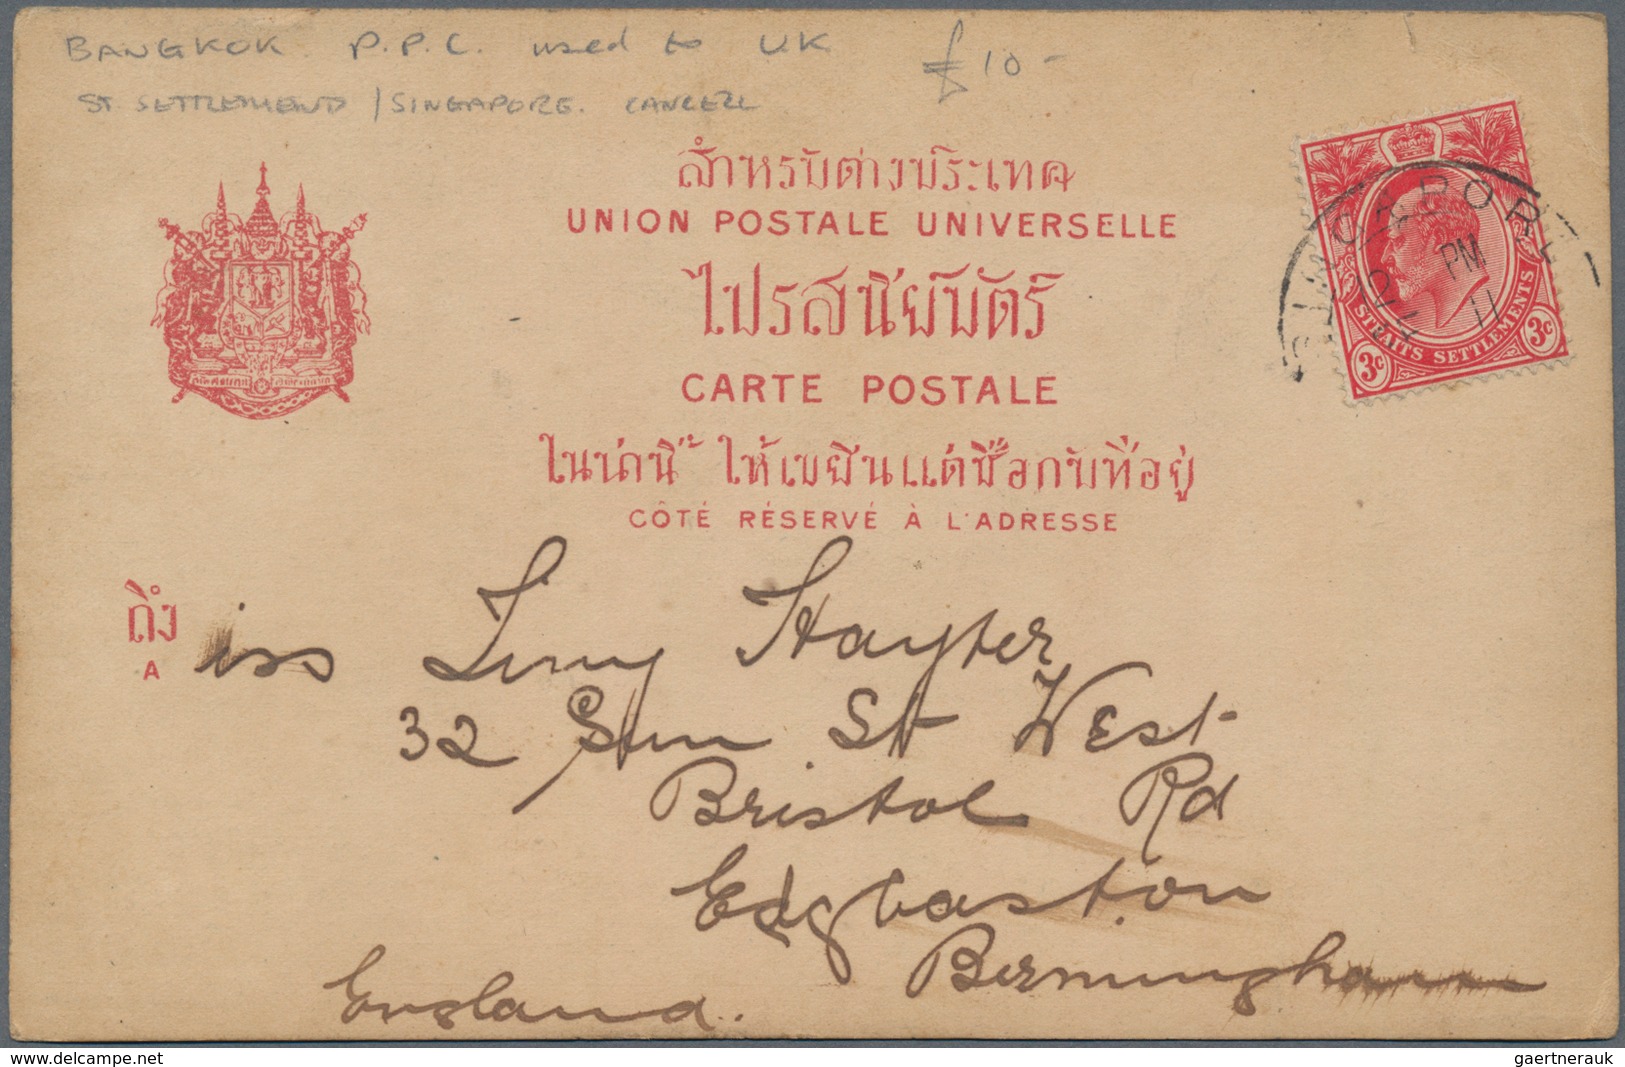 BANGKOK P.P.C. used to UK £10-
ST SETTLEMEND / SINGAPORE. CANCELL
สำหรับต่างประเทศ
UNION POSTALE UNIVERSELLE
ไปรสนียบัตร์
CARTE POSTALE
ในน่านี้ ให้เขียนแต่ชื่อกับที่อยู่
CÔTÉ RÉSERVÉ À L'ADRESSE
SINGAPORE
PM
11
STRAITS SETTLEMENTS
3c 3c
ถึง
A
iss Hayter
32 Sun St West
Bristol Rd
Edgbaston
Birmingham
England.
delcampe.net
gaertnerauk